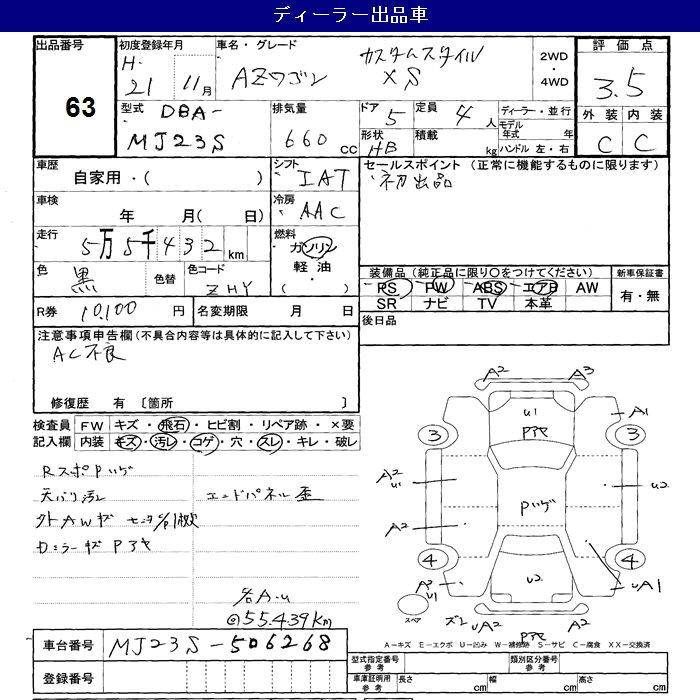 ディーラー出品車
出品番号 63
初度登録年月 H. 21年 11月
車名・グレード AZワゴン カスタムスタイル XS
2WD ・ 4WD
評価点 3.5
外装 C 内装 C
型式 DBA- MJ23S
排気量 660 cc
ドア 5 定員 4人
形状 HB 積載 kg
ディーラー・並行
モデル年式 年
ハンドル 左・右
車歴 自家用・( )
シフト IAT
セールスポイント (正常に機能するものに限ります)
初出品
車検 年 月( 日)
冷房 AAC
走行 5万5千432km
燃料 ガソリン 軽油 ( ・ )
色 黒 色替 色コード ZHY
装備品 (純正品に限り○をつけてください)
PS PW ABS エアB AW
SR ナビ TV 本革
新車保証書 有・無
R券 10,100円 名変期限 月 日
後日品
注意事項申告欄 (不具合内容等は具体的に記入して下さい)
AC不良
修復歴 有 〔箇所 〕
検査員記入欄
FW キズ・飛石・ヒビ割・リペア跡・×要
内装 キズ・汚レ・コゲ・穴・スレ・キレ・破レ
天バリ汚レ エンドパネル歪
外AWキズ
ドミラーキズ Pアセ
各A.u
@55.439Km
車台番号 MJ23S-506268
登録番号
A2 A3
U1
Pアセ
A1
3 3
A2 U1
U2
A2
4 4
A3 U1
U2
UA1
スペア
UA2
Pアセ
A2
A－キズ E－エクボ U－凹み W－補修跡 S－サビ C－腐食 XX－交換済
型式指定番号 参考 類別区分番号 参考
車庫証明用 参考 長さ cm 幅 cm 高さ cm